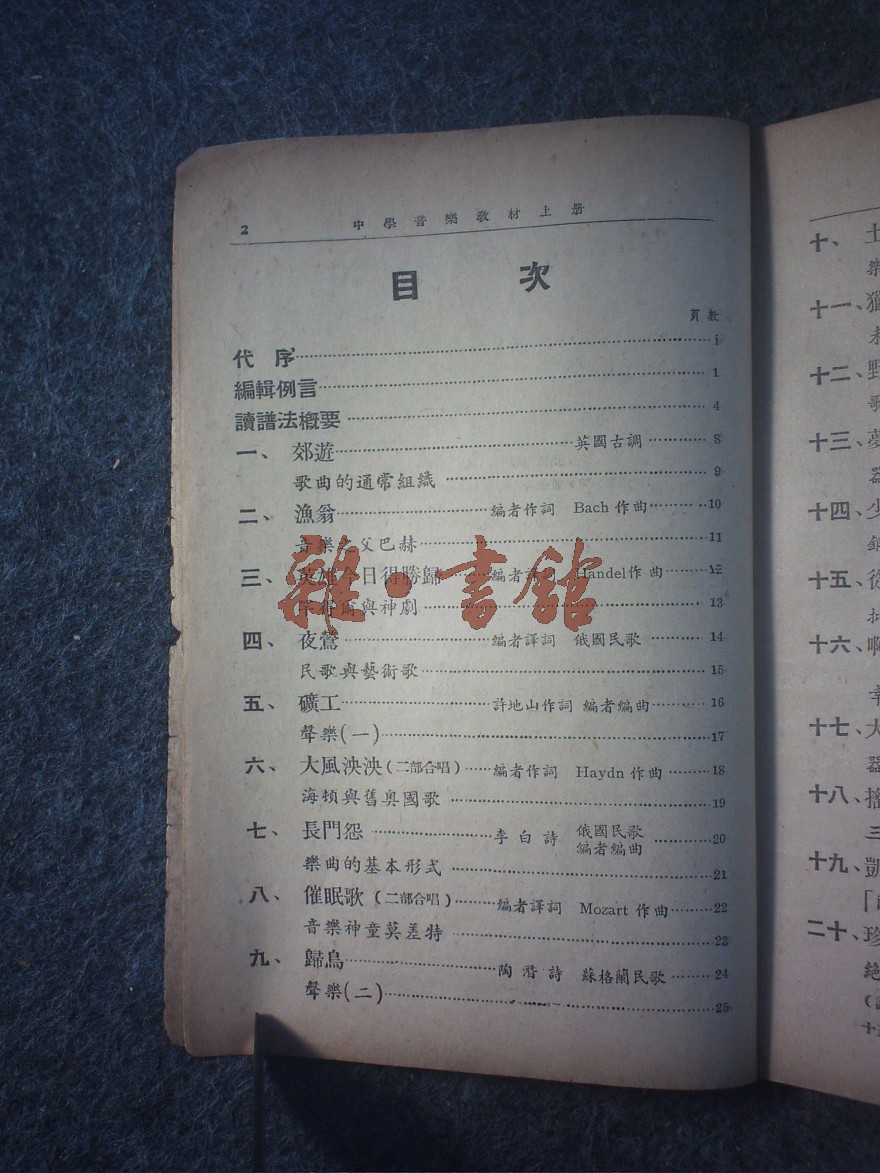 2 中學音樂教材上册
目次
頁數
代序 i
編輯例言 1
讀譜法概要 4
一、 郊遊 英國古調 8
歌曲的通常組織 9
二、 漁翁 編者作詞 Bach 作曲 10
音樂之父巴赫 11
三、 英雄今日得勝歸 編者譯詞 Handel作曲 12
與神劇 13
四、 夜鶯 編者譯詞 俄國民歌 14
民歌與藝術歌 15
五、 礦工 許地山作詞 編者編曲 16
聲樂(一) 17
六、 大風泱泱(二部合唱) 編者作詞 Haydn 作曲 18
海頓與舊奧國歌 19
七、 長門怨 李白詩 俄國民歌 編者編曲 20
樂曲的基本形式 21
八、 催眠歌(二部合唱) 編者譯詞 Mozart 作曲 22
音樂神童莫差特 23
九、 歸鳥 陶潛詩 蘇格蘭民歌 24
聲樂(二) 25
十、
十一、
十二、
十三、
十四、
十五、
十六、
十七、
十八、
十九、
二十、
雜·書館